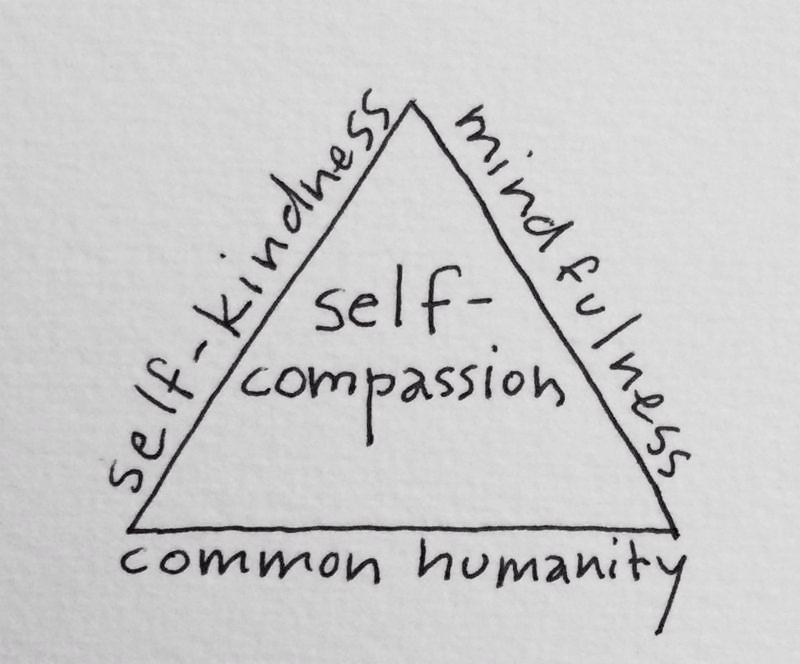 self-kindness
mindfulness
self-
compassion
common humanity